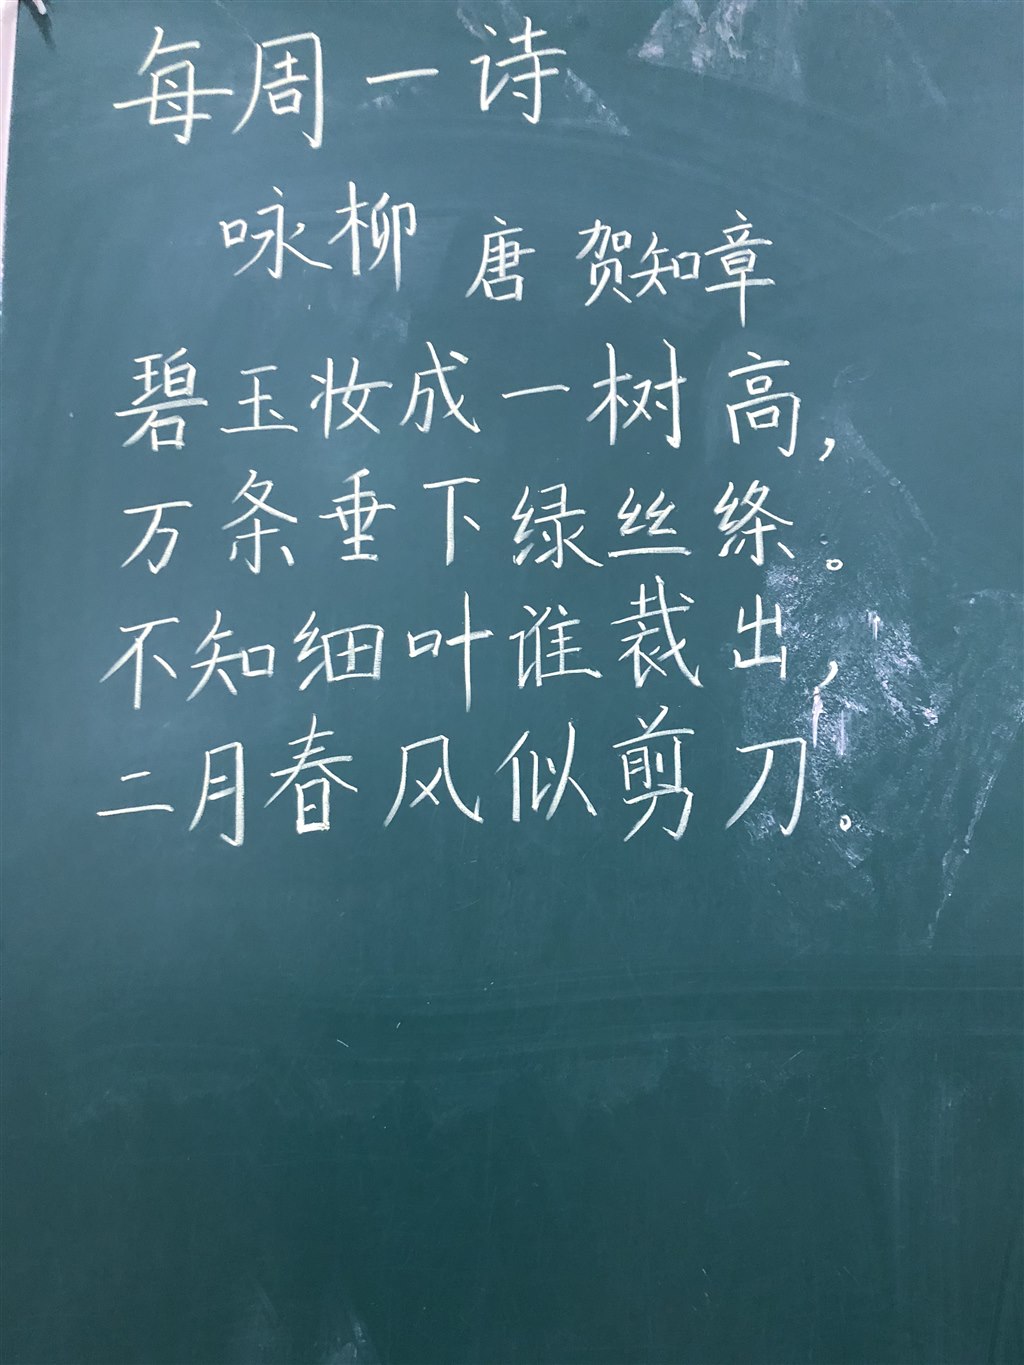 每周一诗
咏柳 唐 贺知章
碧玉妆成一树高，
万条垂下绿丝绦。
不知细叶谁裁出，
二月春风似剪刀。